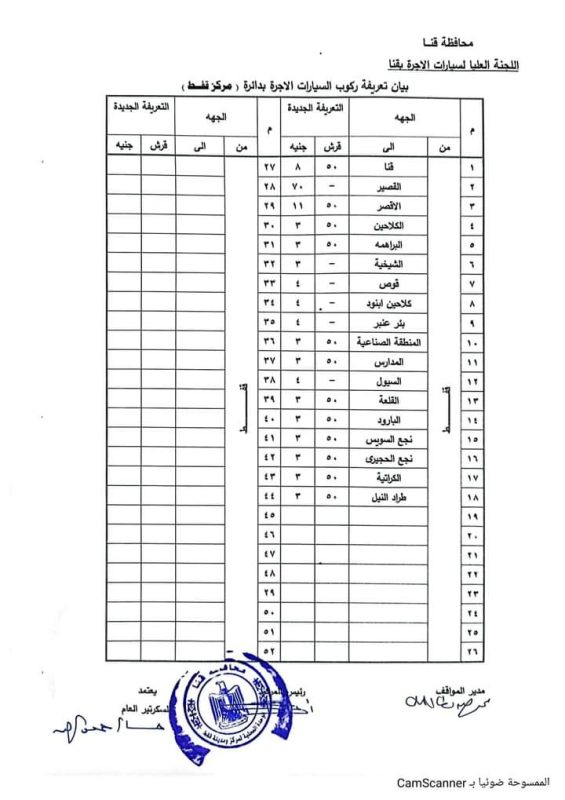 محافظة قنا
اللجنة العليا لسيارات الاجرة بقنا
بيان تعريفة ركوب السيارات الاجرة بدائرة ( مركز قفط )
م الجهه التعريفة الجديدة م الجهه التعريفة الجديدة
من الى قرش جنيه من الى قرش جنيه
١ قنا ٥٠ ٨ ٢٧
٢ القصير – ٧٠ ٢٨
٣ الاقصر ٥٠ ١١ ٢٩
٤ الكلاحين ٥٠ ٣ ٣٠
٥ البراهمه ٥٠ ٣ ٣١
٦ الشيخية – ٣ ٣٢
٧ قوص – ٤ ٣٣
٨ كلاحين ابنود – ٤ ٣٤
٩ بئر عنبر – ٤ ٣٥
١٠ المنطقة الصناعية ٥٠ ٣ ٣٦
١١ المدارس ٥٠ ٣ ٣٧
١٢ السيول – ٤ ٣٨
١٣ القلعة ٥٠ ٣ ٣٩
قفط قفط
١٤ البارود ٥٠ ٣ ٤٠
١٥ نجع السويس ٥٠ ٣ ٤١
١٦ نجع الحجيرى ٥٠ ٣ ٤٢
١٧ الكراتية ٥٠ ٣ ٤٣
١٨ طراد النيل ٥٠ ٣ ٤٤
١٩ ٤٥
٢٠ ٤٦
٢١ ٤٧
٢٢ ٤٨
٢٣ ٤٩
٢٤ ٥٠
٢٥ ٥١
٢٦ ٥٢
مدير المواقف رئيس يعتمد
السكرتير العام
محافظة قنا
الوحدة المحلية لمركز ومدينة قفط
الممسوحة ضوئيا بـ CamScanner